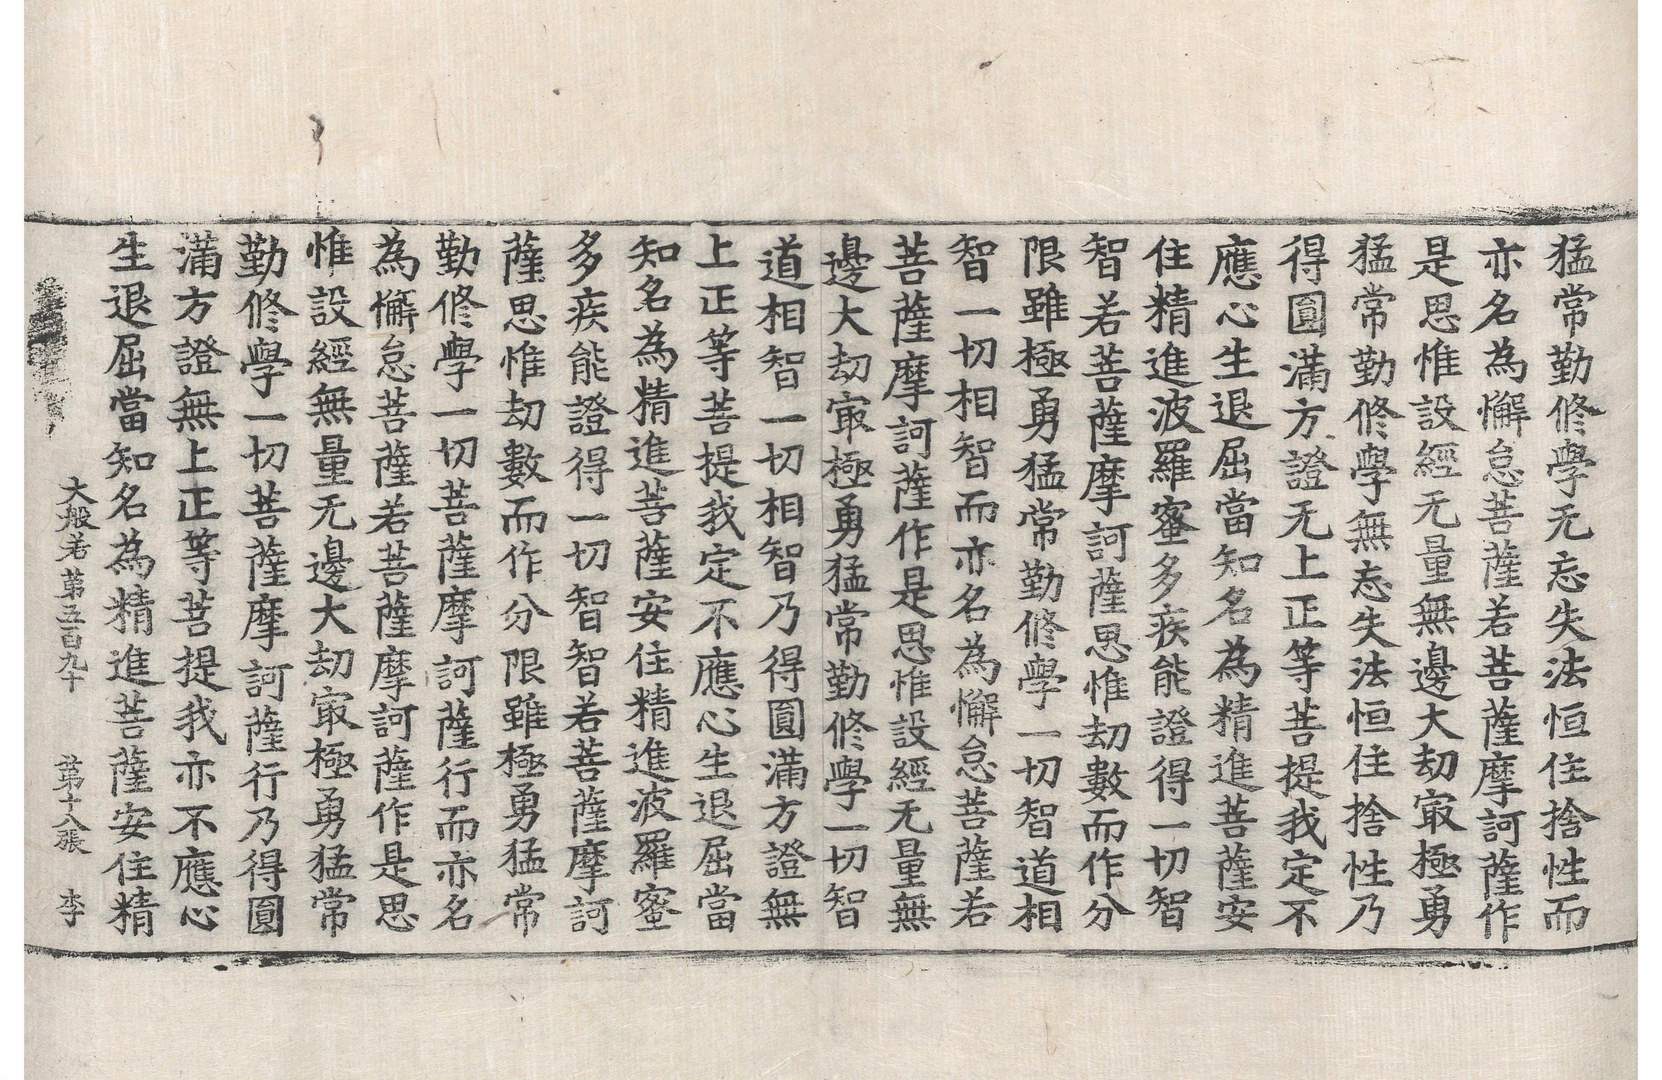 猛常勤修學无忘失法恒住捨性而
亦名為懈怠菩薩若菩薩摩訶薩作
是思惟設經无量無邊大劫㝡極勇
猛常勤修學無忘失法恒住捨性乃
得圓滿方證无上正等菩提我定不
應心生退屈當知名為精進菩薩安
住精進波羅蜜多疾能證得一切智
智若菩薩摩訶薩思惟劫數而作分
限雖極勇猛常勤修學一切智道相
智一切相智而亦名為懈怠菩薩若
菩薩摩訶薩作是思惟設經无量無
邊大劫㝡極勇猛常勤修學一切智
道相智一切相智乃得圓滿方證無
上正等菩提我定不應心生退屈當
知名為精進菩薩安住精進波羅蜜
多疾能證得一切智智若菩薩摩訶
薩思惟劫數而作分限雖極勇猛常
勤修學一切菩薩摩訶薩行而亦名
為懈怠菩薩若菩薩摩訶薩作是思
惟設經無量无邊大劫㝡極勇猛常
勤修學一切菩薩摩訶薩行乃得圓
滿方證無上正等菩提我亦不應心
生退屈當知名為精進菩薩安住精
大般若第五百九十 第十八張 李